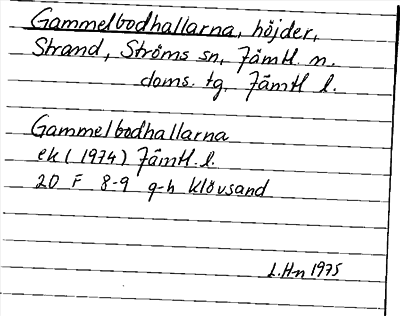 Gammelbodhallarna, höjder,
Strand, Ströms sn, Jämtl. n.
doms. tg, Jämtl l.
Gammelbodhallarna
ek (1974) Jämtl. l.
20 F 8-9 g-h Klövsand
L.Hn 1975